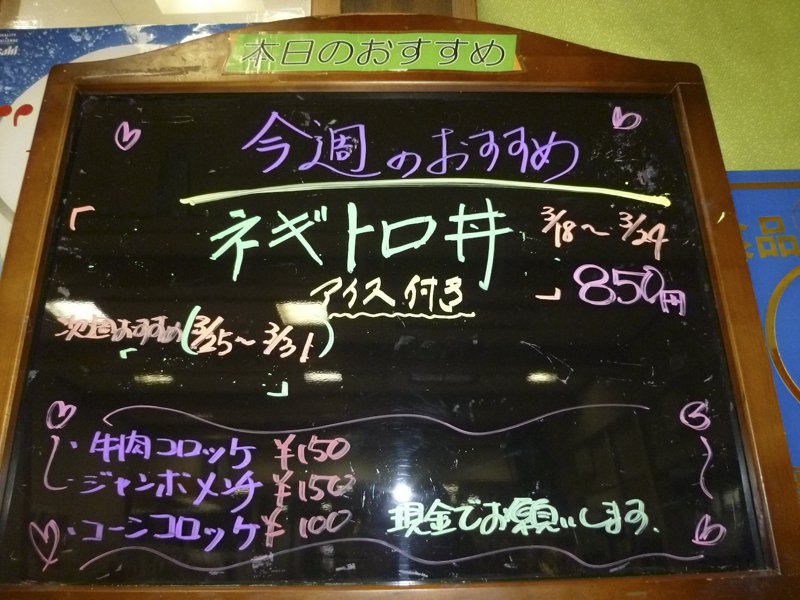 本日のおすすめ
今週のおすすめ
「ネギトロ丼 3/18〜3/24
アイス付き 」850円
次週おすすめ(3/25〜3/31)
「 」
・牛肉コロッケ ¥150
・ジャンボメンチ ¥150
・コーンコロッケ ¥100
現金でお願いします.
品